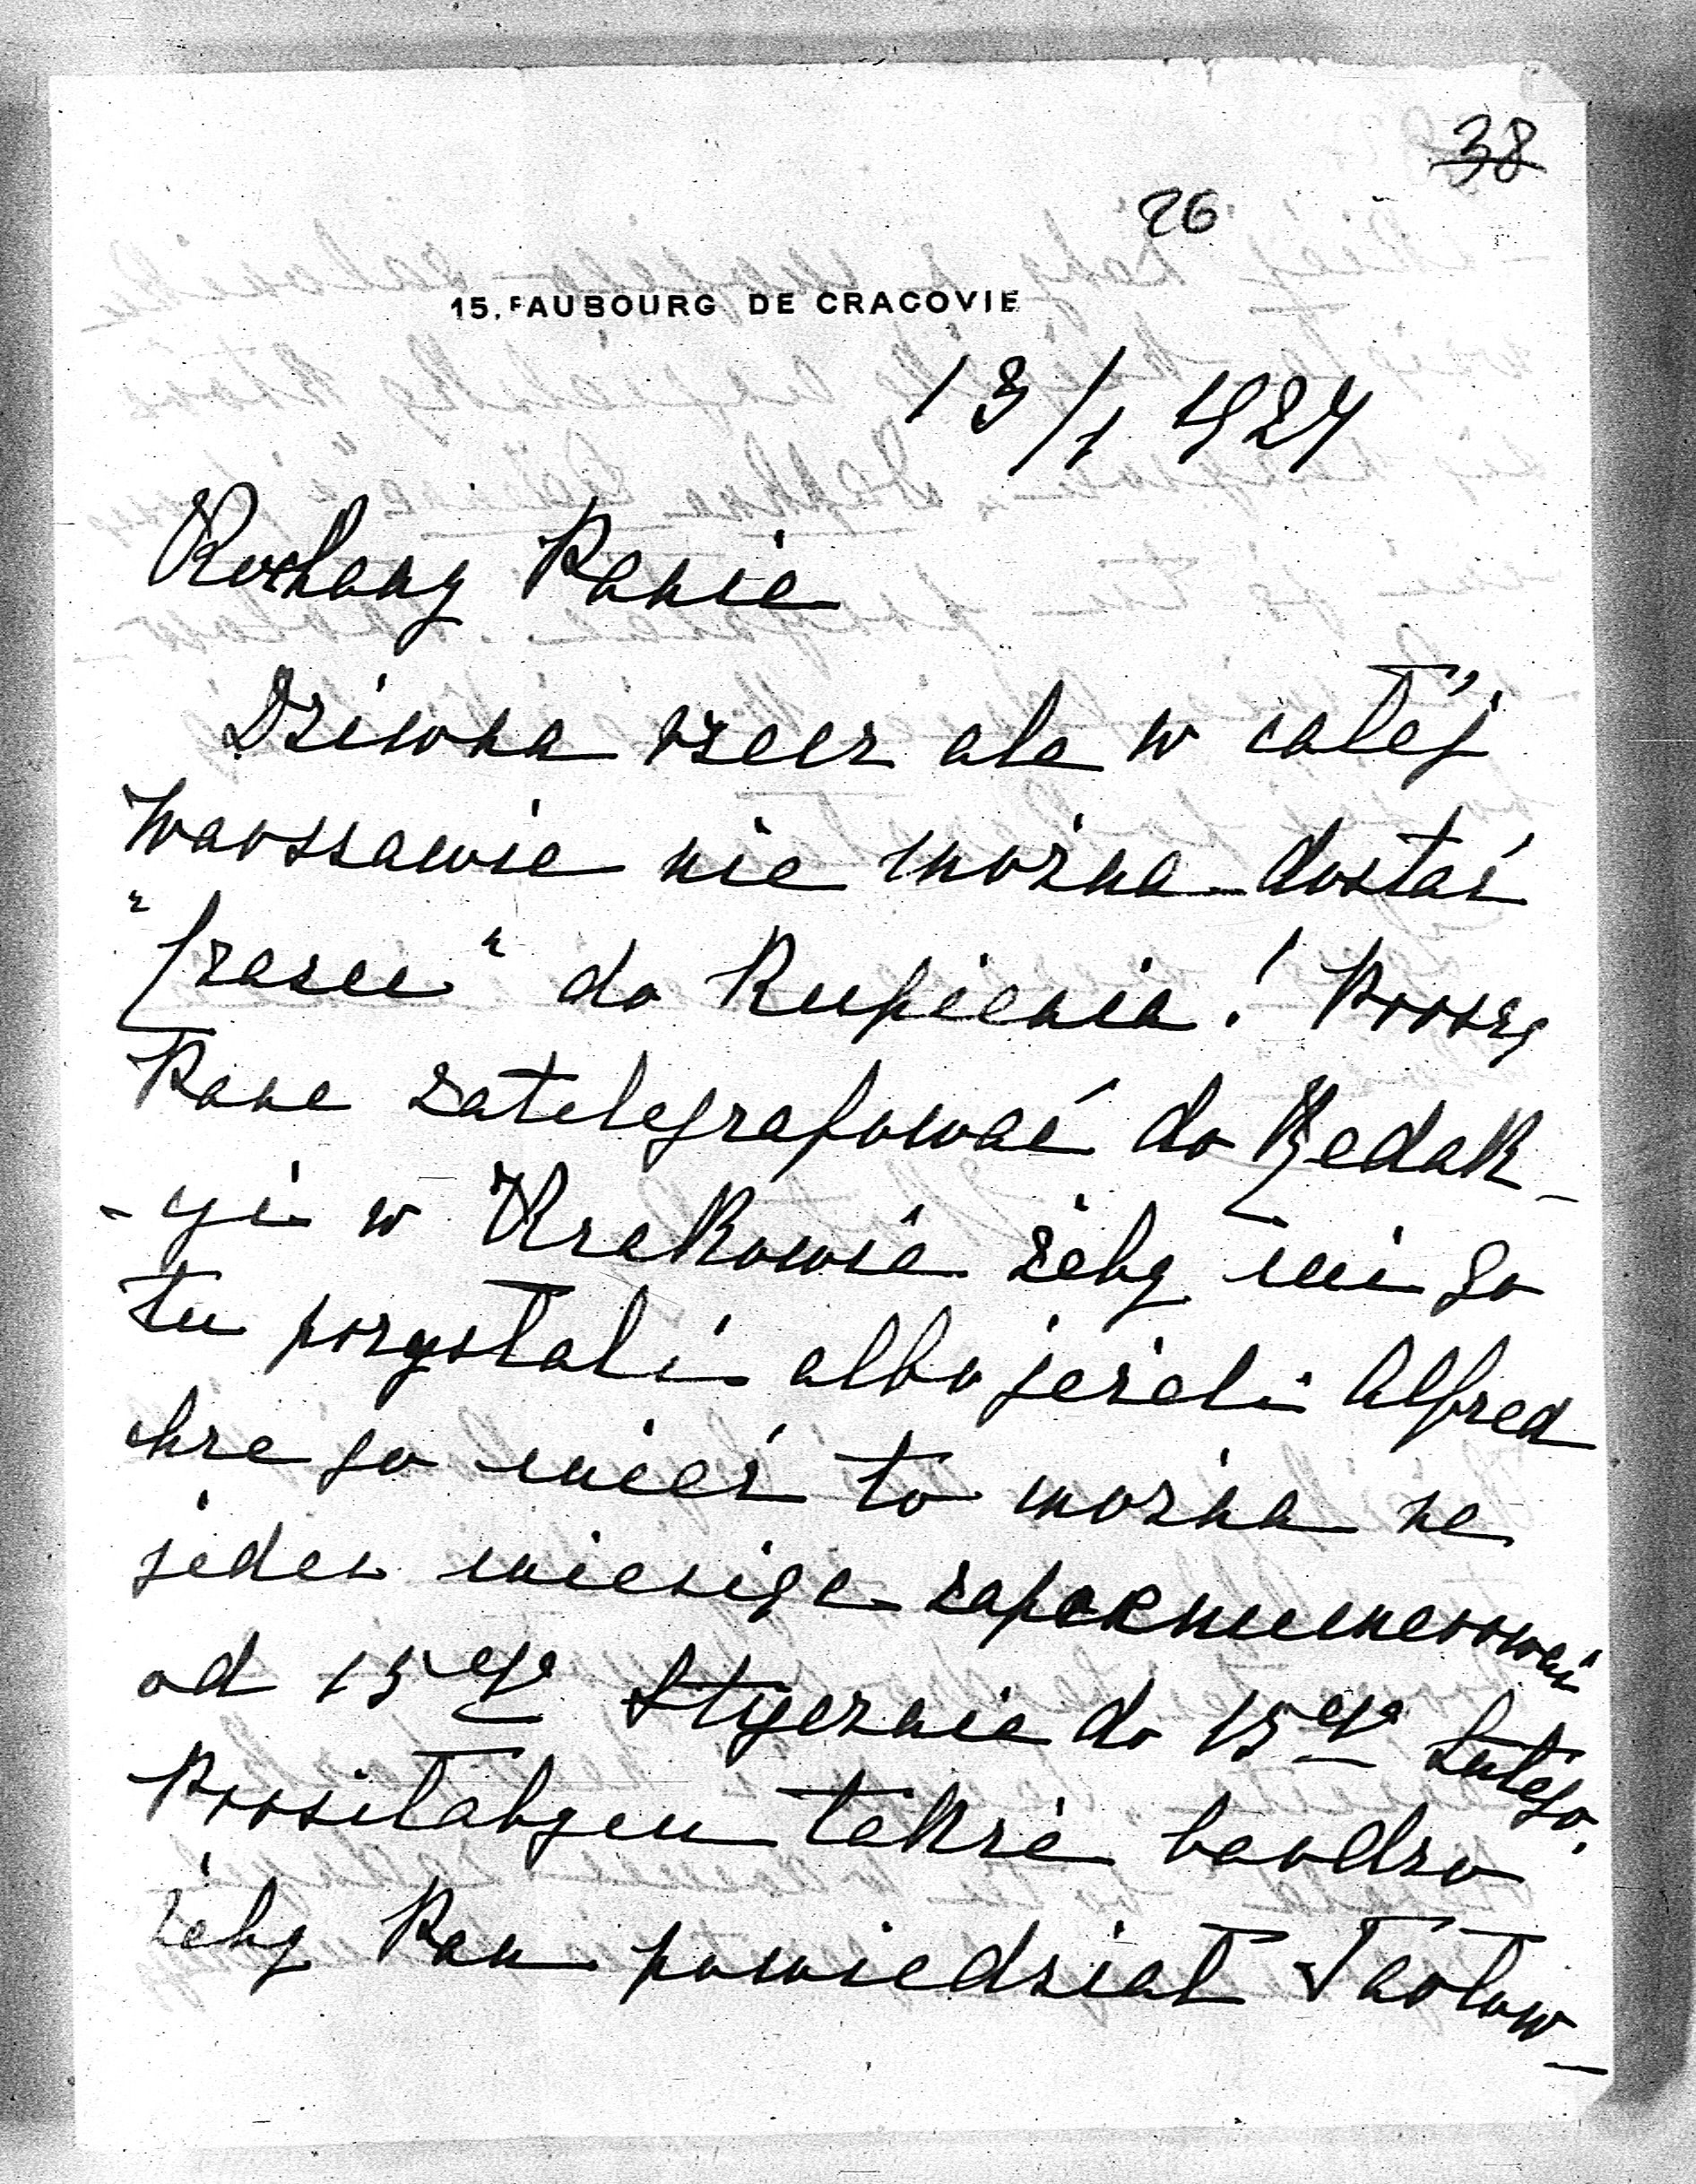 38
26
15, FAUBOURG DE CRACOVIE
13/1 1924
Kochany Panie
Dziwna rzecz ale w całéj
Warszawie nie można dostać
"Czasu" do kupienia! Proszę
Pana zatelegrafować do Redak-
-cyi w Krakowie żeby mi go
tu przysłali albo jeżeli Alfred
chce go mieć to można na
jeden miesiąc zaprenumerować
od 15ego Stycznia do 15ego Lutego.
Prosiłabym także bardzo
żeby Pan powiedział